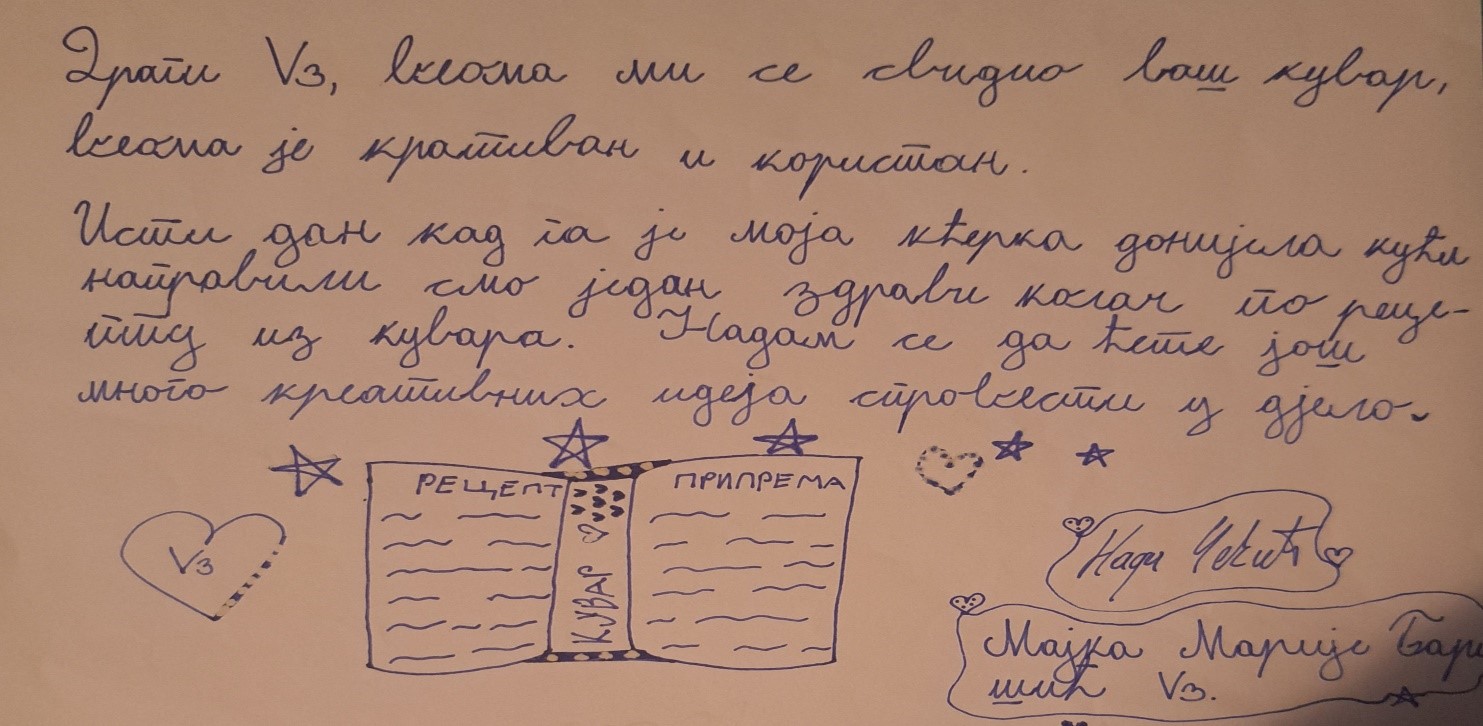 Драги V₃, веома ми се свидио ваш кувар,
веома је кративан и користан.
Исти дан кад га је моја кћерка донијела кући
направили смо један здрави колач по реце-
пту из кувара. Надам се да ћете још
много креативних идеја спровести у дјело.
РЕЦЕПТ
ПРИПРЕМА
КУВАР
V₃
Мајка Марије Бар
шић V₃.